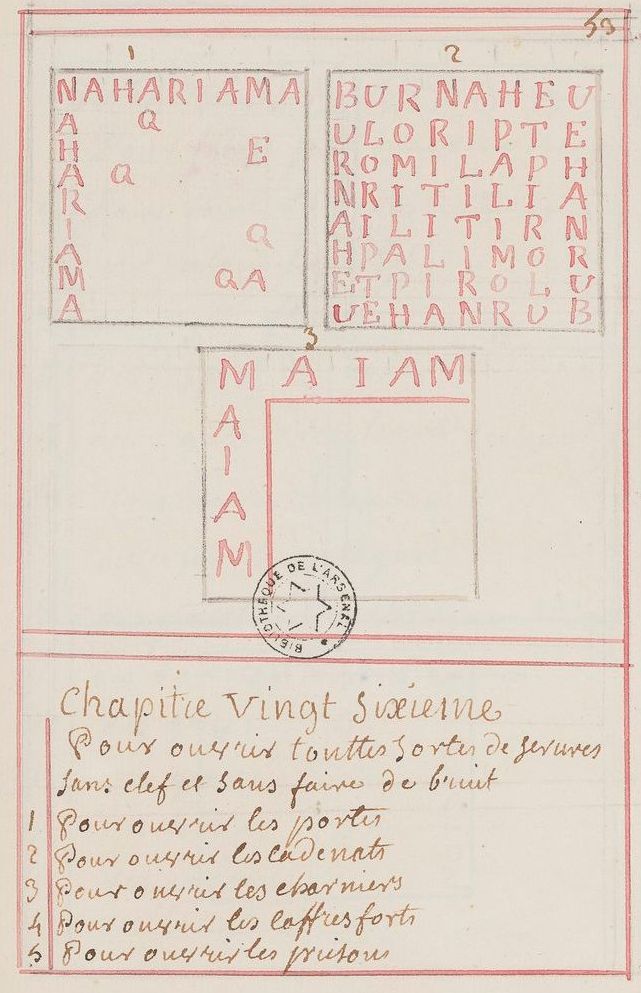 53
1
NAHARIAMA
A Q
H E
A Q
R
I Q
A
M QA
A
2
BURNAHEU
ULORIPTE
ROMILAPH
NRITILIA
AILITIRN
HPALIMOR
ETPIROLU
UEHANRUB
3
MAIAM
A
I
A
M
BIBLIOTHEQUE DE L'ARSENAL
Chapitre Vingt Sixieme
Pour ouvrir touttes Sortes de Serures
Sans clef et Sans faire de bruit
1 Pour ouvrir les portes
2 Pour ouvrir les Cadenats
3 Pour ouvrir les charniers
4 Pour ouvrir les Coffres forts
5 Pour ouvrir les prisons